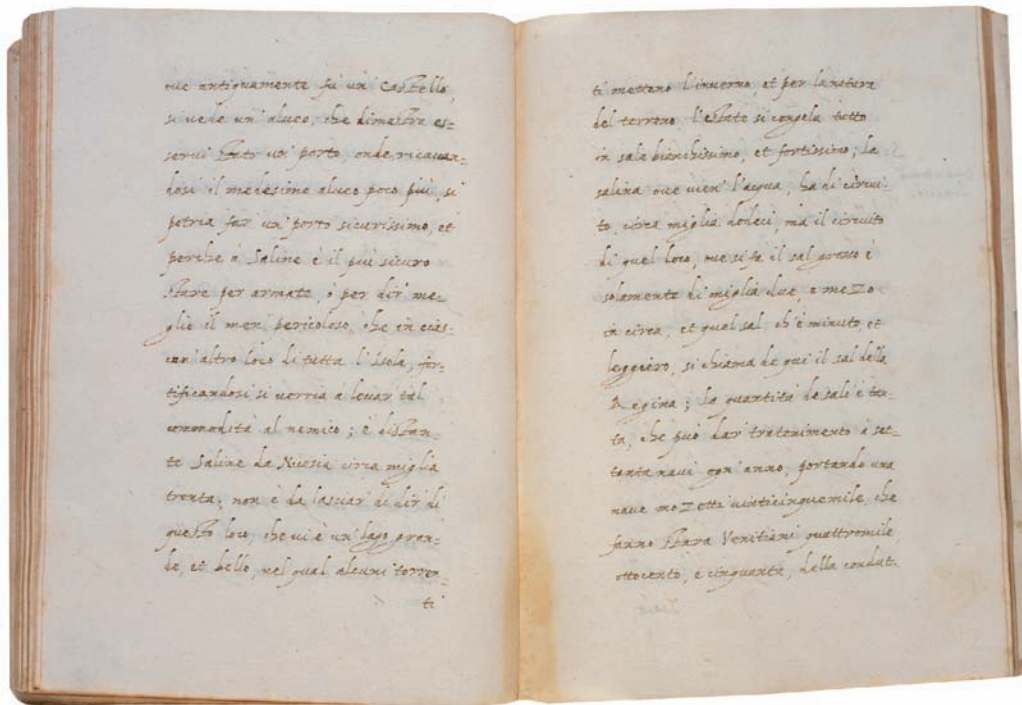 oue antiquamente fù un' castello,
si uede un' alueo, che dimostra es=
serui stato un' porto, onde ricauan=
dosi il medesimo alueo poco piu, si
potria far un' porto sicurissimo, et
perche à Saline è il piu sicuro
stare per armate, ò per dir' me=
glio il men' pericoloso, che in cias=
cun' altro loco di tutta l'Isola, for=
tificandosi si uerria à leuar tal
commodità al nemico; è distan=
te Saline da Nicosia circa miglia
trenta, non è da lasciar di dir di
questo loco, che ui è un' lago gran=
de, et bello, nel qual alcuni torren=
ti
ti metteno l'inuerno, et per la natura
del terreno, l'estate si congela tutto
in sale bianchissimo, et fortissimo; la
salina oue uien' l'acqua, ha di circui=
to, circa miglia dodeci, ma il circuito
di quel loco, oue si fa il sal grosso è
solamente di miglia due, e mezo
in circa, et quel sal, ch'è minuto, et
leggiero, si chiama de qui il sal della
Regina; la quantità de sali è tan=
ta, che può dar tratenimento à set=
tanta naui ogn' anno, portando una
naue mozetti uinticinquemile, che
fanno stara Venitiani quattromile,
ottocento, e cinquanta, della condut=